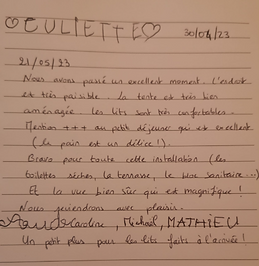 ♡OULIETTE♡ 30/04/23
21/05/23
Nous avons passé un excellent moment. L'endroit
est très paisible. La tente est très bien
aménagée. Les lits sont très confortables.
Mention +++ au petit déjeuner qui est excellent
(le pain est un délice!).
Bravo pour toute cette installation (les
toilettes sèches, la terrasse, le bloc sanitaire...)
Et la vue bien sûr qui est magnifique!
Nous reviendrons avec plaisir.
Caroline, Michaël, MATHIEU
Un petit plus pour les lits faits à l'arrivée!